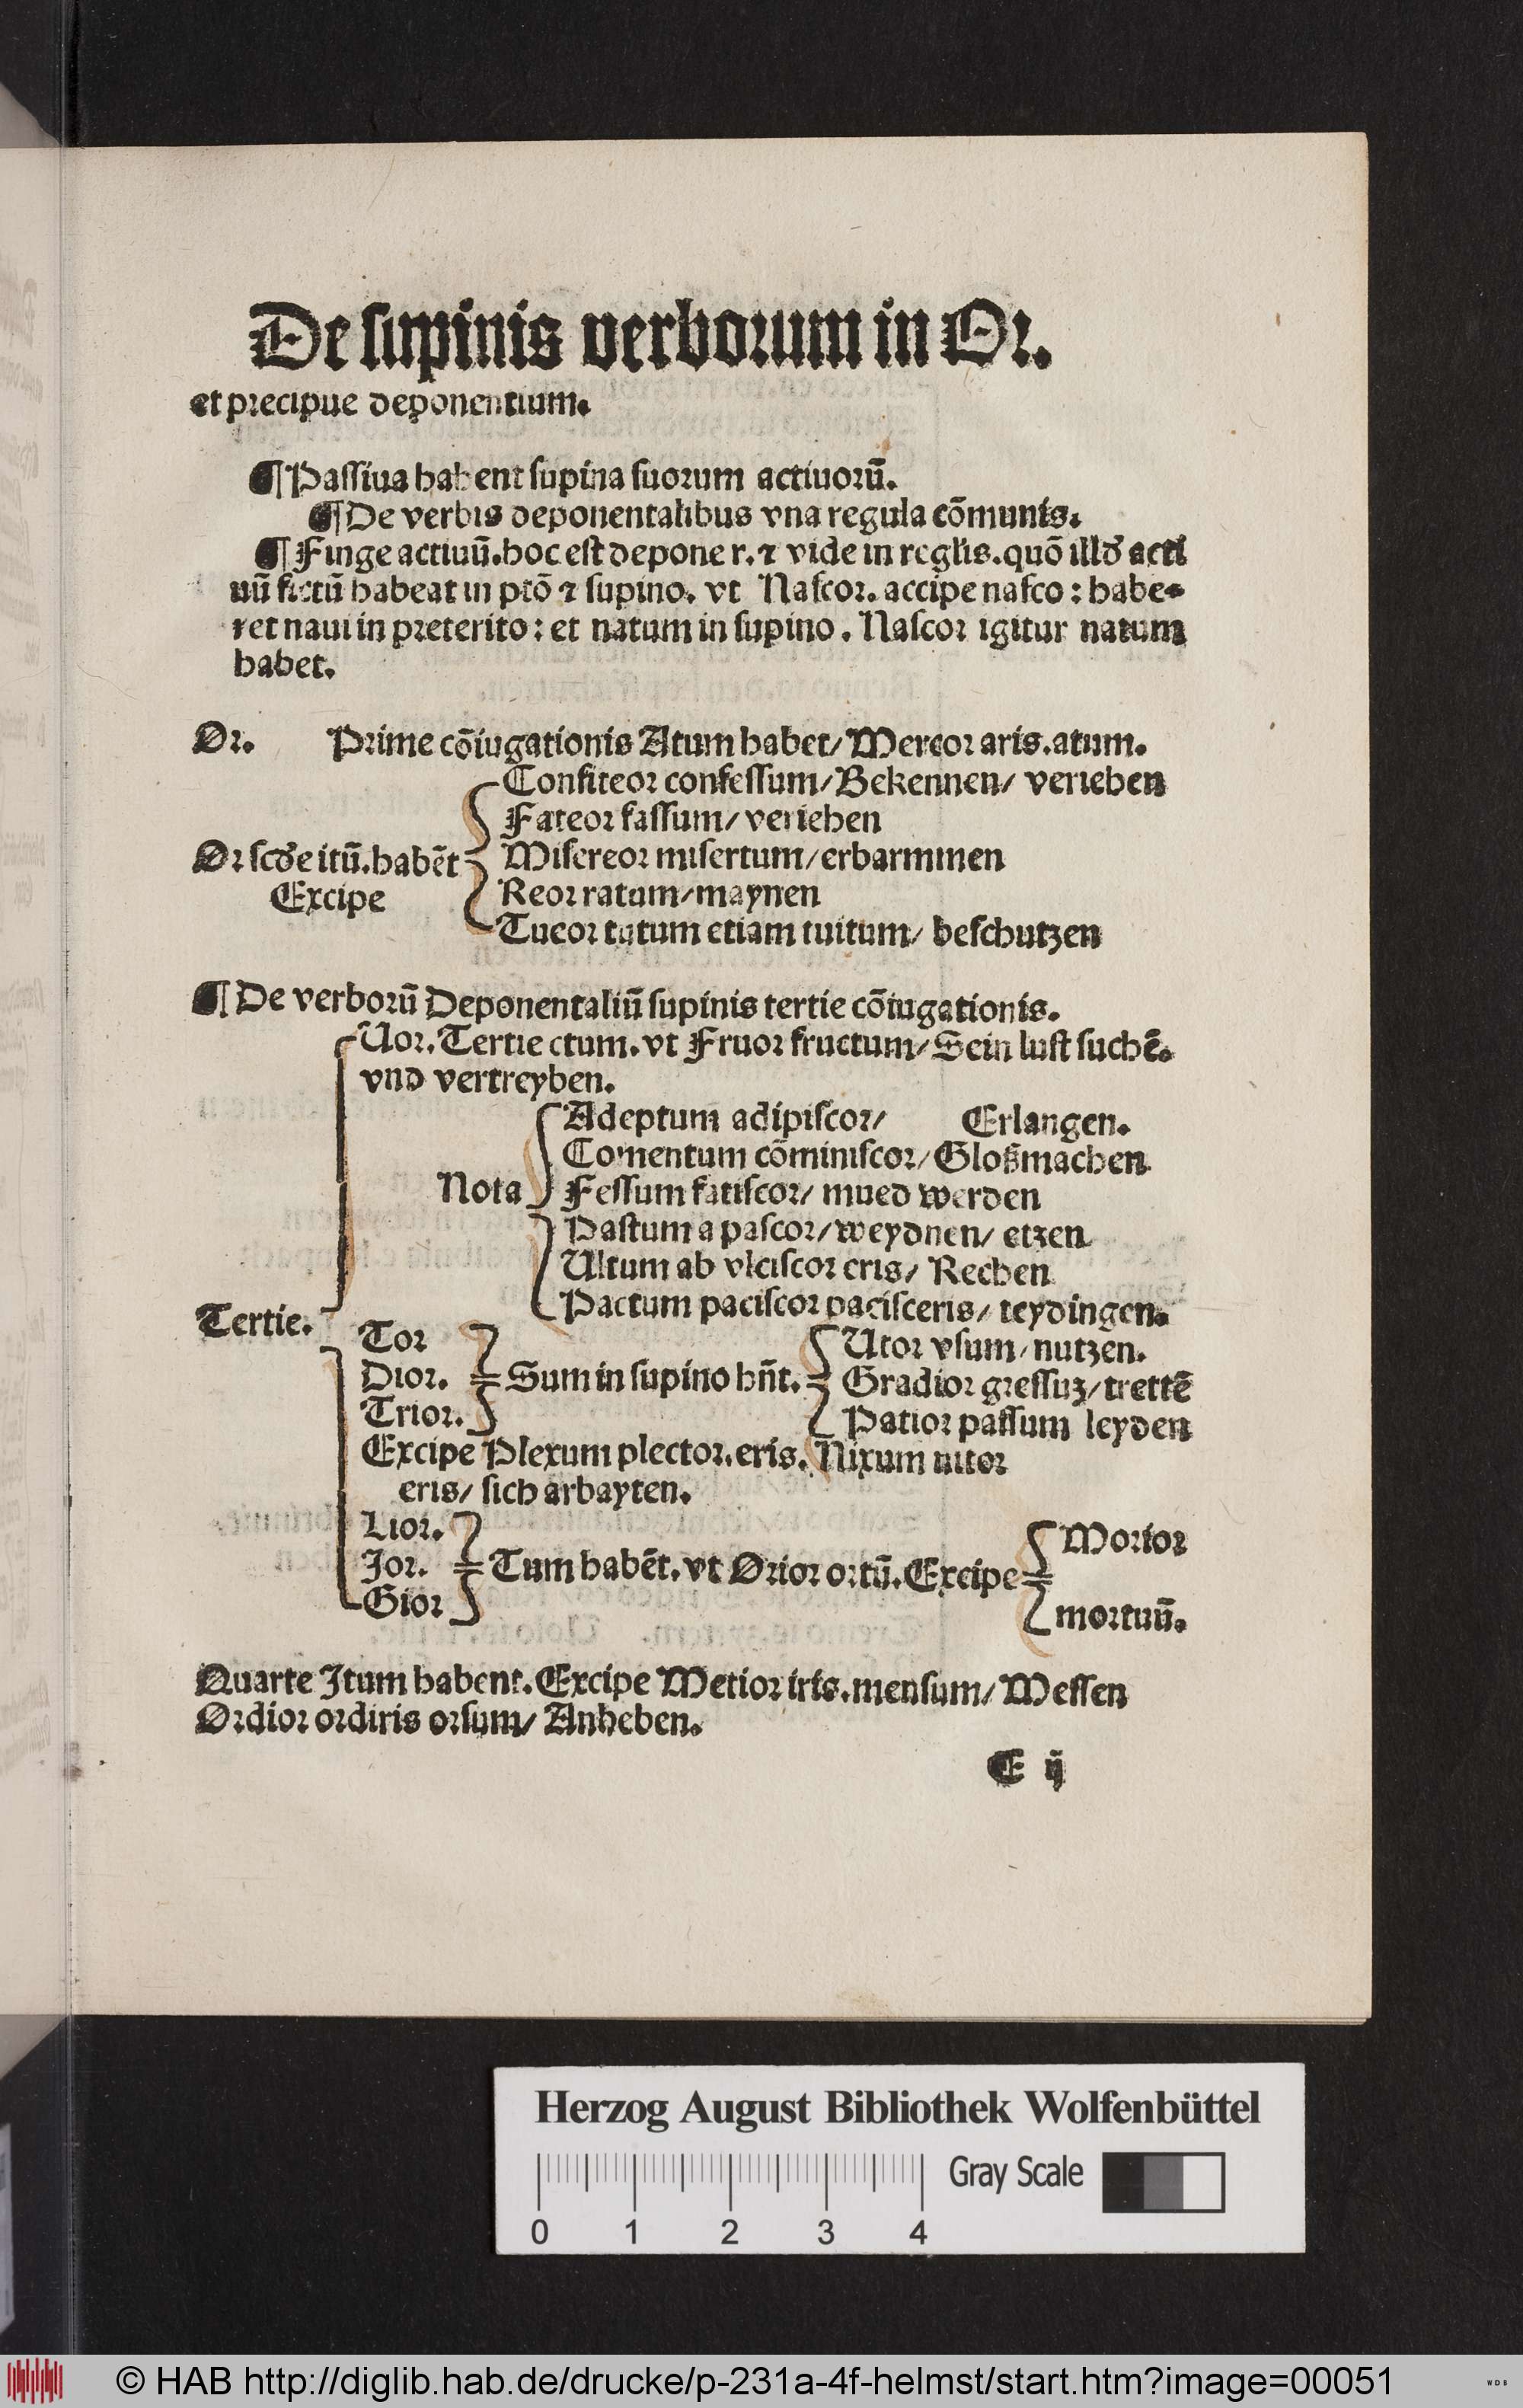 De supinis verborum in Or.
et precipue deponentium.
¶ Passiua habent supina suorum actiuorū.
¶ De verbis deponentalibus vna regula cōmunis.
¶ Finge actiuū. hoc est depone r. ⁊ vide in reglis. quō illd acti
uū fictū habeat in ptō ⁊ supino. vt Nascor. accipe nasco: habe-
ret naui in preterito: et natum in supino. Nascor igitur natum
habet.
Or. Prime cōiugationis Atum habet/ Mercor aris. atum.
Confiteor confessum/ Bekennen/ veriehen
Fateor fassum/ veriehen
Or scde itū. habēt Misereor misertum/ erbarmmen
Excipe Reor ratum/ maynen
Tueor tutum etiam tuitum/ beschutzen
¶ De verborū Deponentaliū supinis tertie cōiugationis.
Uor. Tertie ctum. vt Fruor fructum/ Sein lust suchē.
vnd vertreyben.
Adeptum adipiscor/ Erlangen.
Comentum cōminiscor/ Gloßmachen
Nota Fessum fatiscor/ mued werden
Pastum a pascor/ weydnen/ etzen
Ultum ab vlciscor eris/ Rechen
Pactum paciscor pacisceris/ teydingen.
Tertie.
Tor Utor vsum/ nutzen.
Dior. Sum in supino hn̄t. Gradior gressuꝫ/ trettē
Trior. Patior passum leyden
Excipe Plexum plector. eris. Nixum nitor
eris/ sich arbayten.
Lior. Morior
Jor. Tum habēt. vt Orior ortū. Excipe
Gior mortuū.
Quarte Itum habent. Excipe Metior iris. mensum/ Messen
Ordior ordiris orsum/ Anheben.
E ij
Herzog August Bibliothek Wolfenbüttel
Gray Scale
0 1 2 3 4
© HAB http://diglib.hab.de/drucke/p-231a-4f-helmst/start.htm?image=00051
WDB